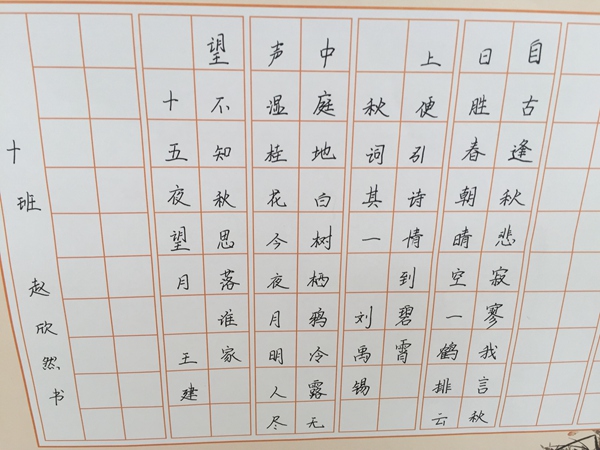 自古逢秋悲寂寥我言秋
日胜春朝晴空一鹤排云
上便引诗情到碧霄
秋词其一 刘禹锡
中庭地白树栖鸦冷露无
声湿桂花今夜月明人尽
望不知秋思落谁家
十五夜望月 王建
十班 赵欣然书